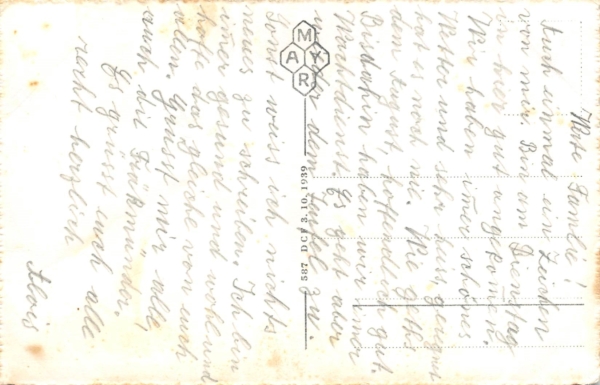 Werte Familie!
Auch einmal ein Zeichen
von mir. Bin am Dienstag
in hier gut angekomen.
Wir haben imer schönes
Wetter und sehr heiss, geregnet
hat es noch nie. Wie gehts
dem August, hoffendlich gut.
Bisdahin haben wir imer
Wachtdienst. Es geht aber
dem Teufel zu.
Sonst weiss ich nichts
neues zu schreiben. Ich bin
imer gesund und wohl und
hoffe das gleiche von euch
allen. Grüsst mir alle,
auch die
Es grüsst euch alle
recht herzlich
Alois
MAYR
587 DCF 3.10.1939